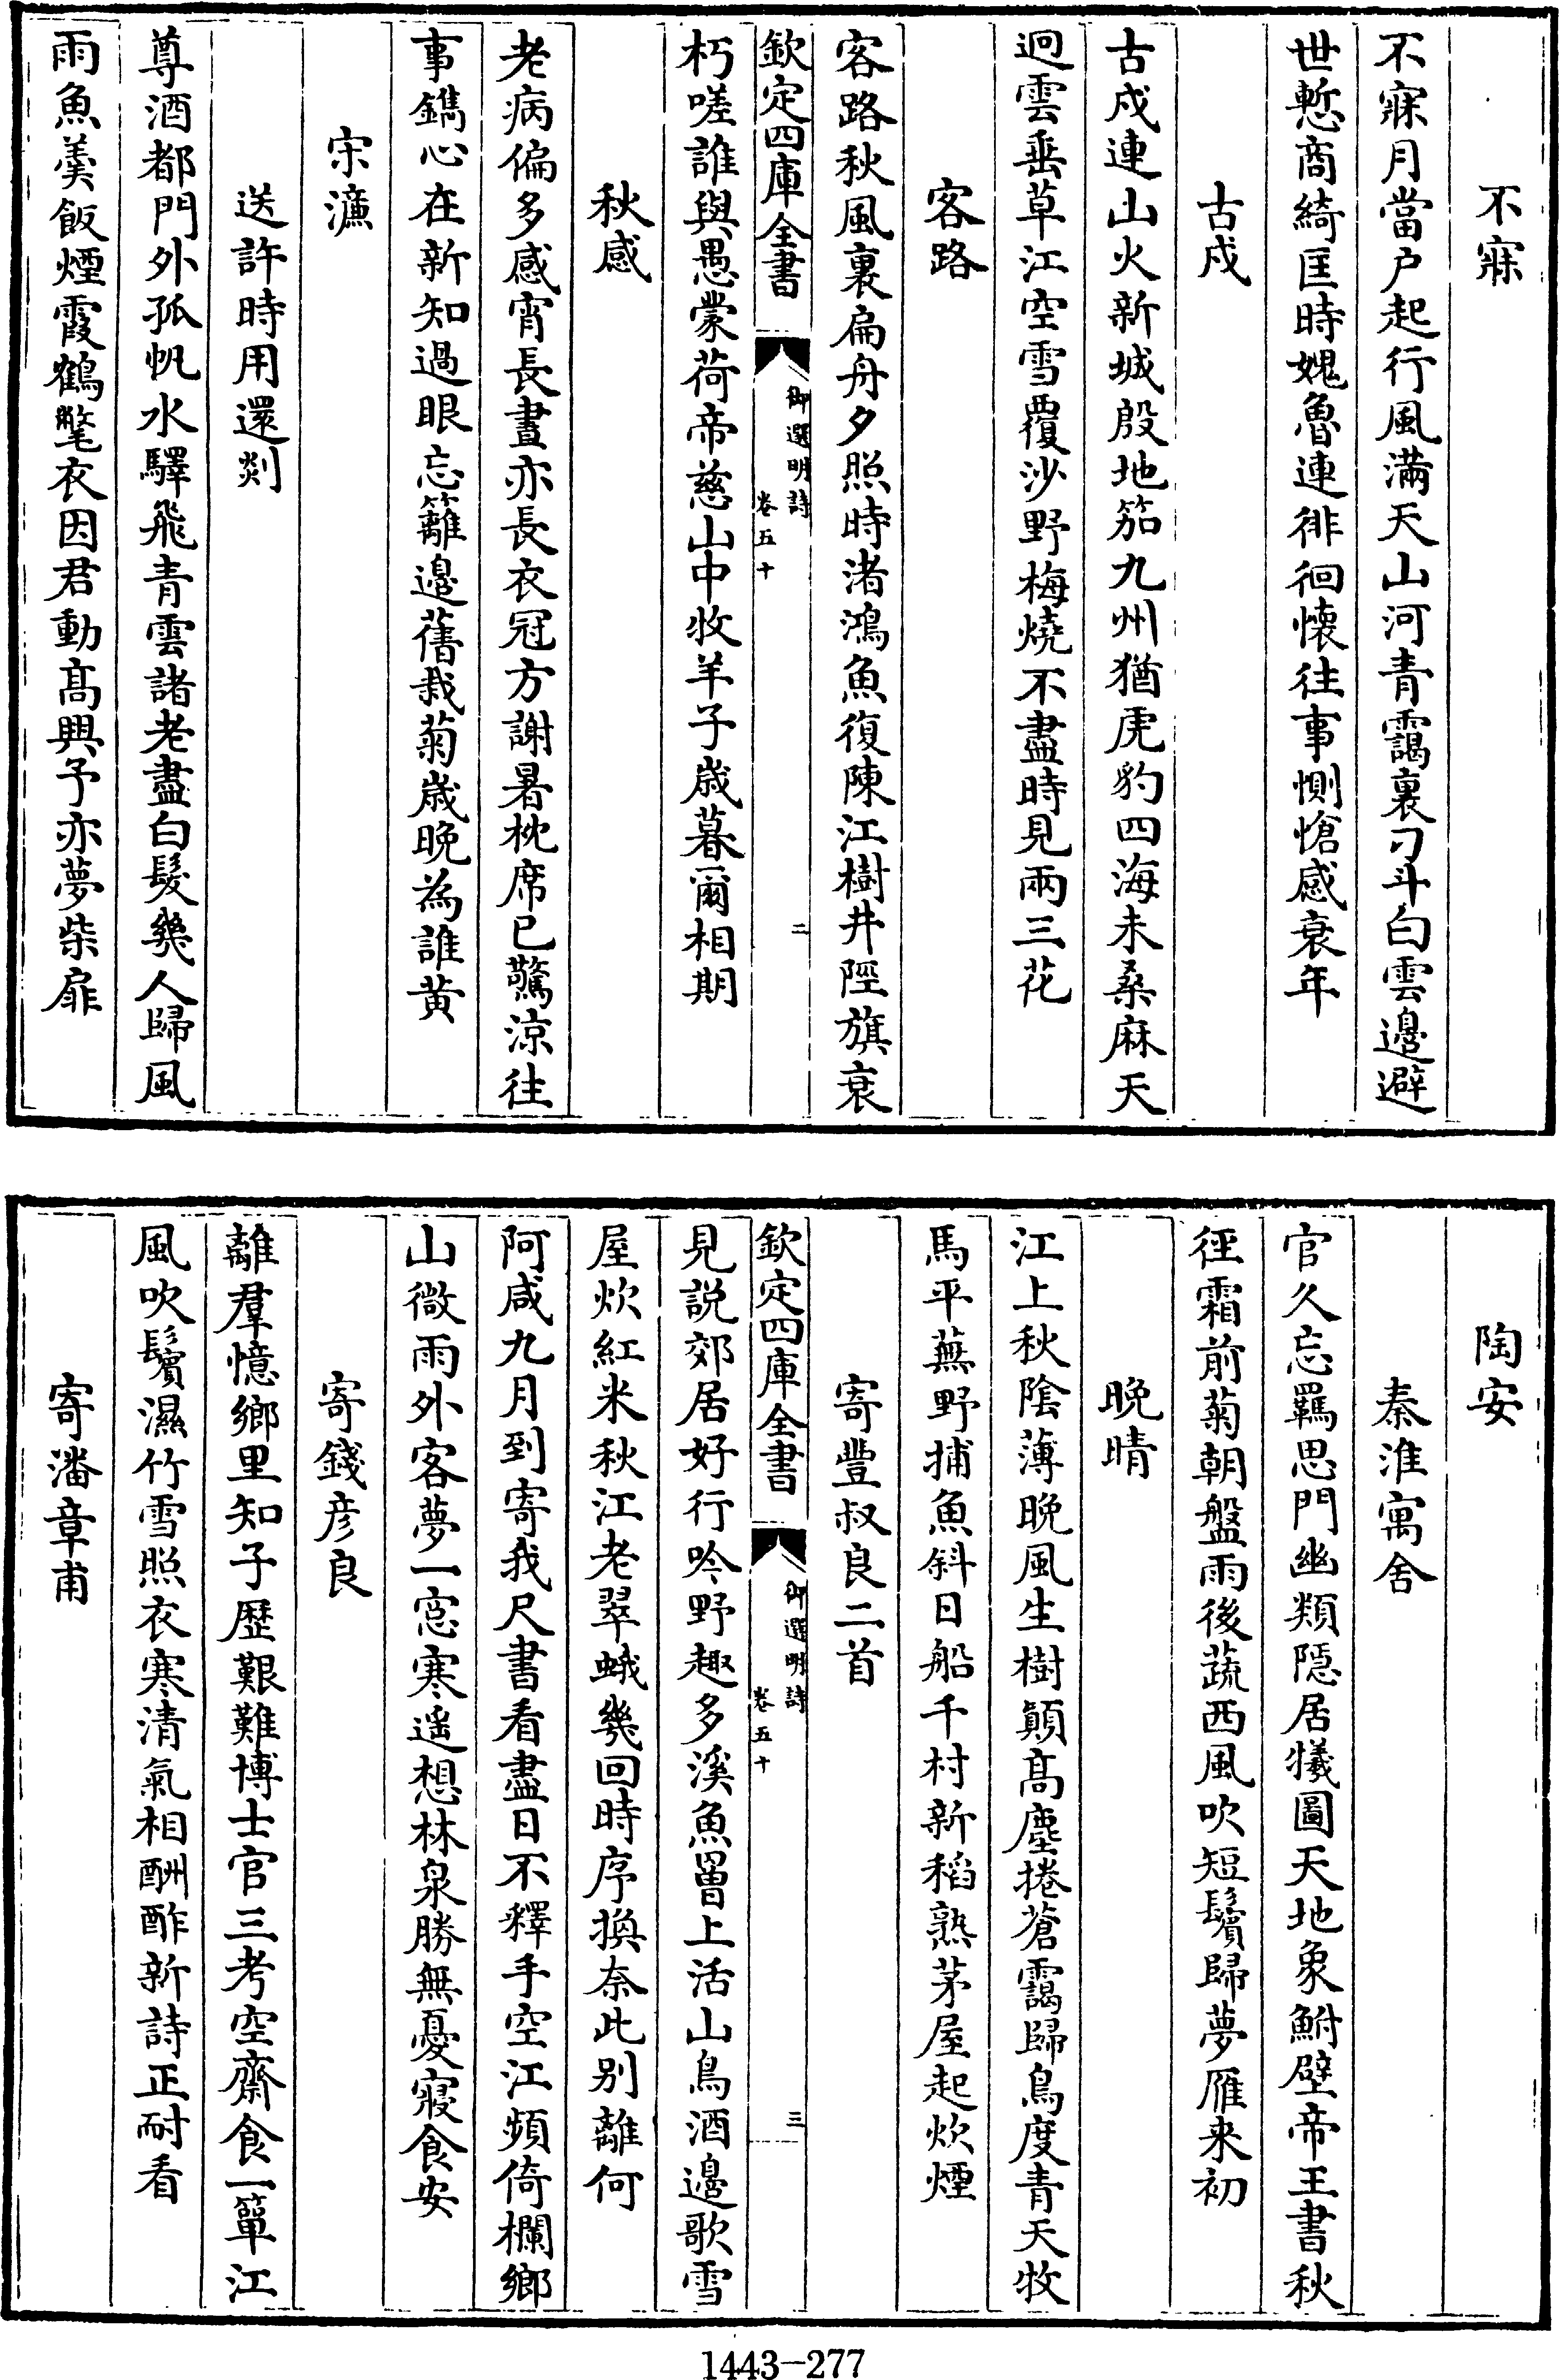 不寐
不寐月當户起行風滿天山河青靄裏刁斗白雲邊避
世慙商綺匡時媿魯連徘徊懷往事惻愴感衰年
古戍
古戍連山火新城殷地笳九州猶虎豹四海未桑麻天
迥雲垂草江空雪覆沙野梅燒不盡時見兩三花
客路
客路秋風裏扁舟夕照時渚鴻魚復陳江樹井陘旗衰
欽定四庫全書
御選明詩
卷五十
二
朽嗟誰與愚蒙荷帝慈山中牧羊子歳暮爾相期
秋感
老病偏多感宵長晝亦長衣冠方謝暑枕席已驚涼往
事鐫心在新知過眼忘籬邊舊栽菊歳晚為誰黄
宋濂
送許時用還剡
尊酒都門外孤帆水驛飛青雲諸老盡白髮幾人歸風
雨魚羹飯煙霞鶴氅衣因君動髙興予亦夢柴扉
陶安
秦淮寓舍
官久忘羈思門幽類隱居犧圖天地象鮒壁帝王書秋
徑霜前菊朝盤雨後蔬西風吹短鬢歸夢雁来初
晚晴
江上秋陰薄晚風生樹顛髙塵捲蒼靄歸鳥度青天牧
馬平蕪野捕魚斜日船千村新稻熟茅屋起炊煙
寄豐叔良二首
欽定四庫全書
御選明詩
卷五十
三
見説郊居好行吟野趣多溪魚罾上活山鳥酒邊歌雪
屋炊紅米秋江老翠蛾幾回時序換奈此别離何
阿咸九月到寄我尺書看盡日不釋手空江頻倚欄鄉
山微雨外客夢一窓寒遥想林泉勝無憂寢食安
寄錢彦良
離羣憶鄉里知子歴艱難博士官三考空齋食一簞江
風吹鬢濕竹雪照衣寒清氣相酬酢新詩正耐看
寄潘章甫
1443-277